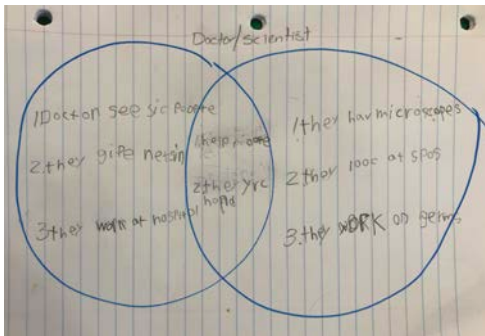 Doctor/scientist
1 Doctor see sic poople
2. they gife netsin
3 they work at hospital
1. help
2 they
1. they hav microscopes
2 they looc at spos
3. they WORK on germs